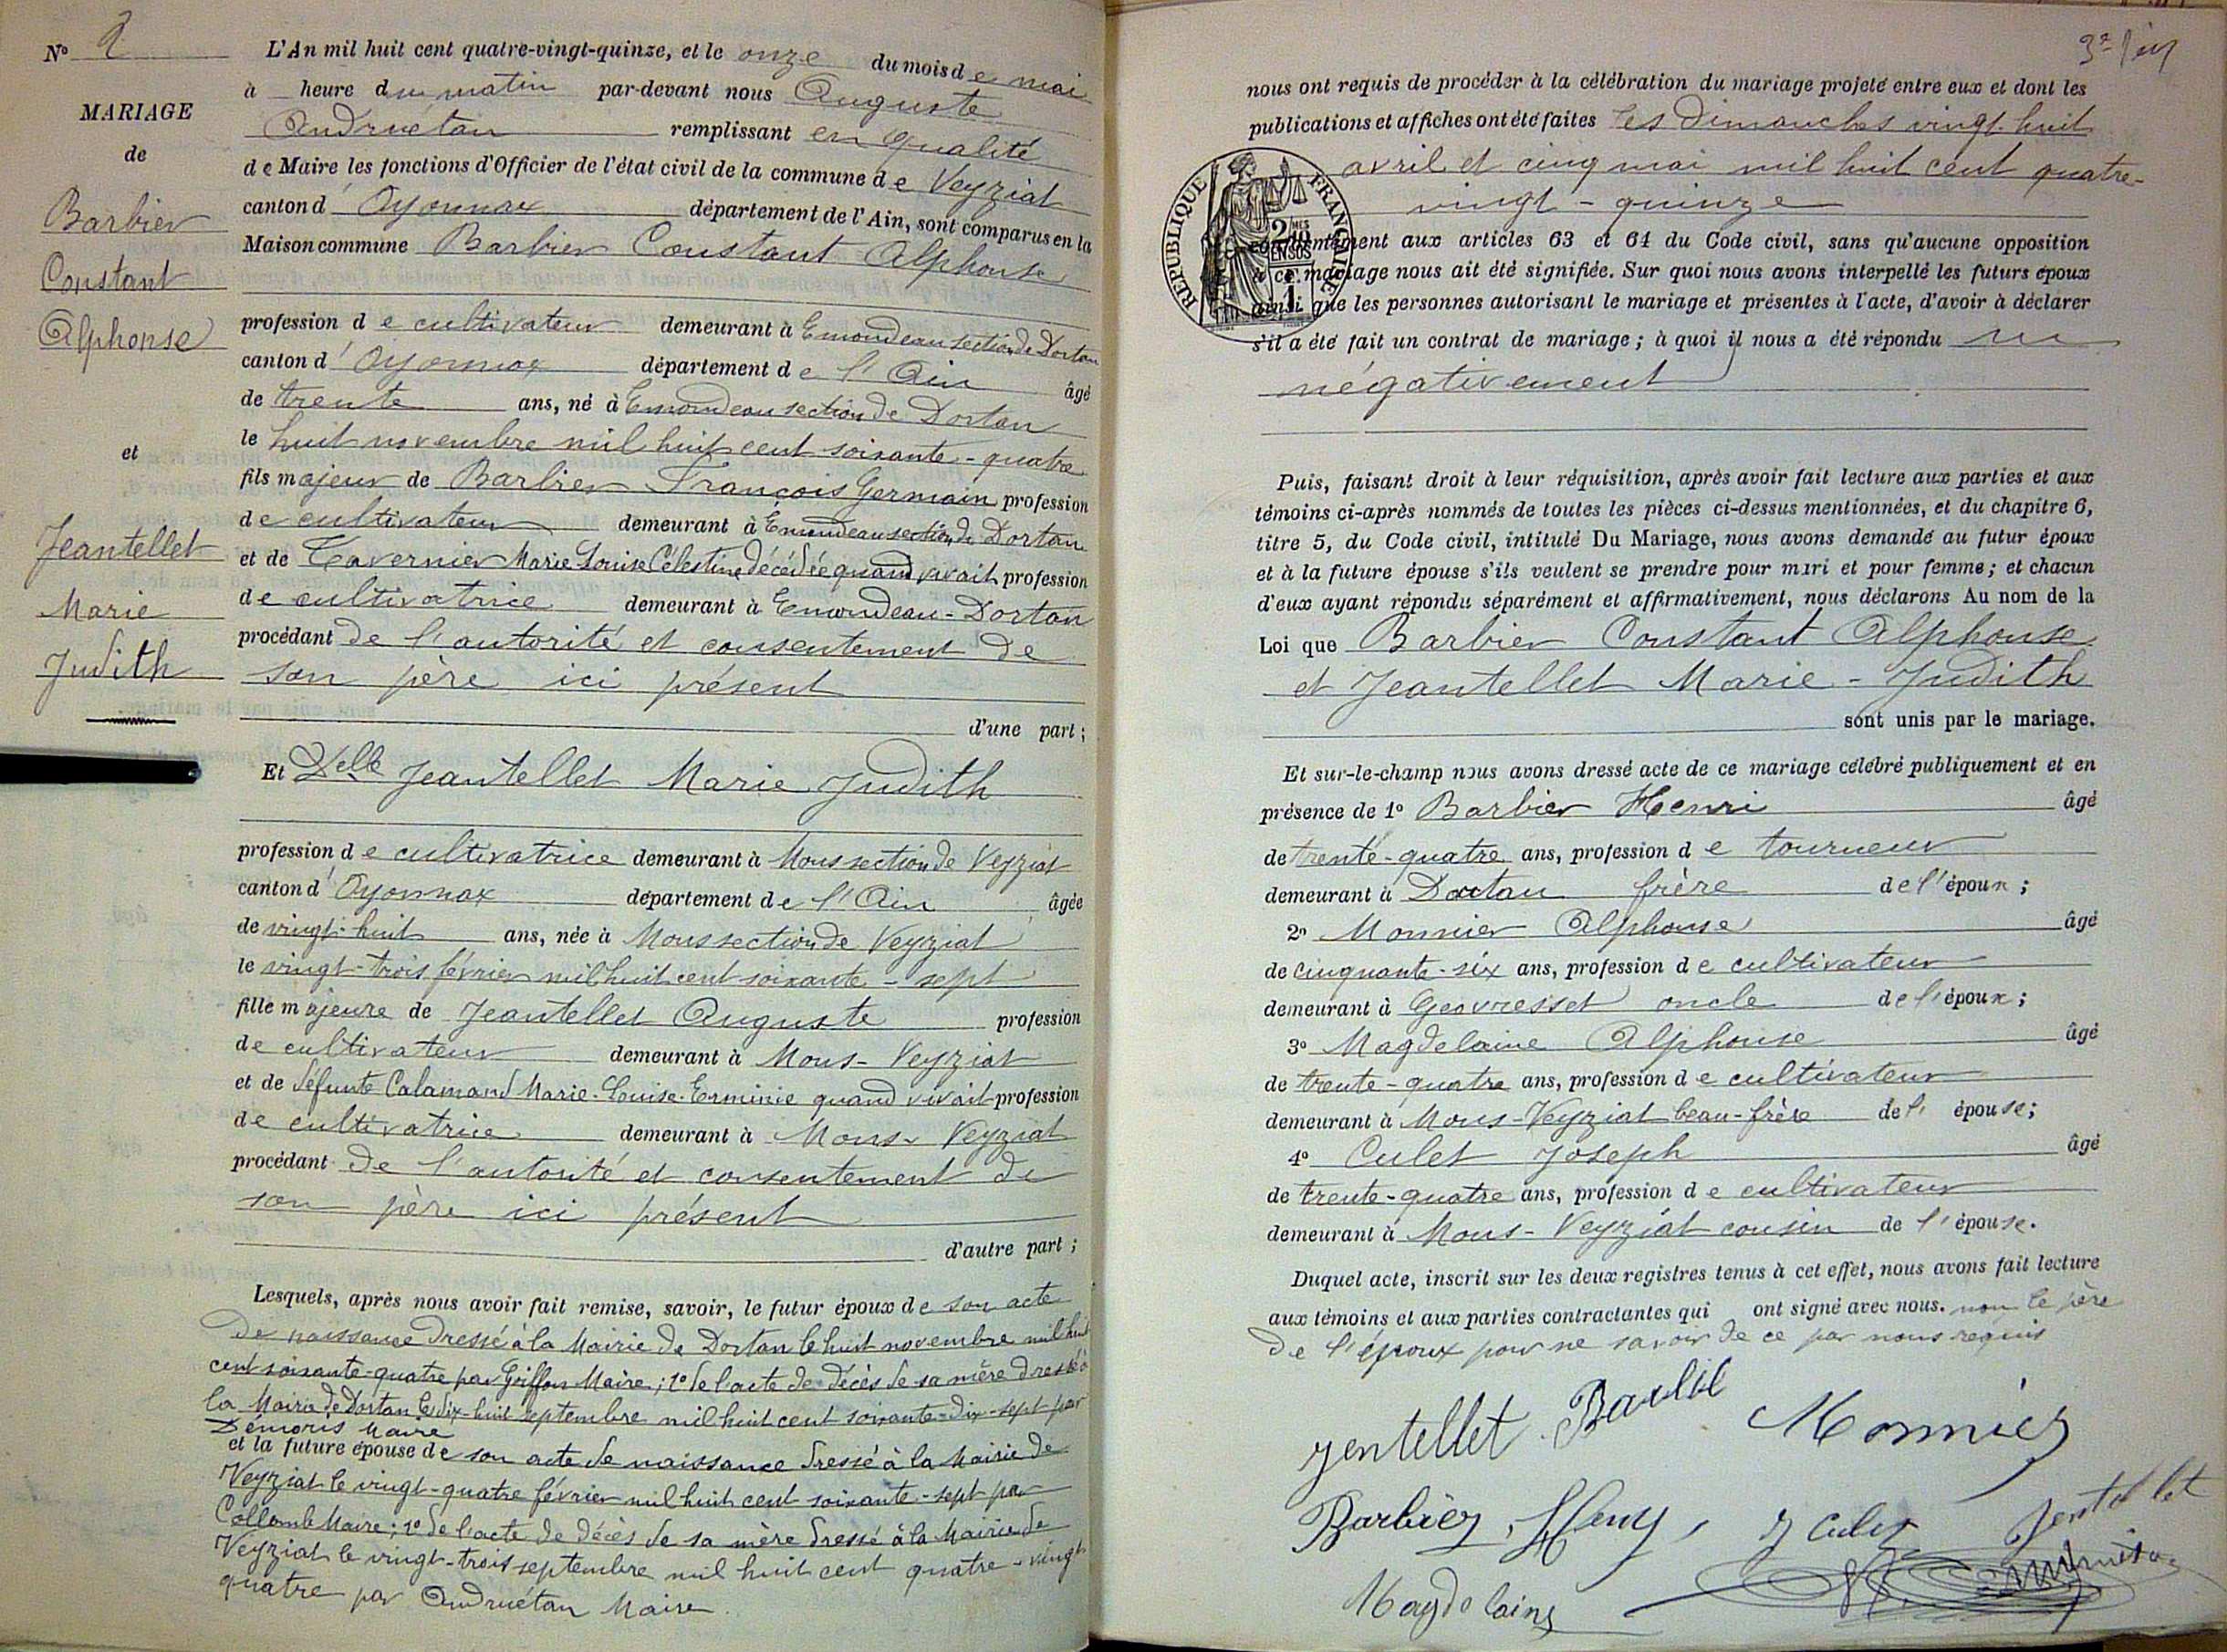 N° 2
MARIAGE
de
Barbier
Constant
Alphonse
et
Jeantellet
Marie
Judith
L'An mil huit cent quatre-vingt-quinze, et le onze du mois de mai
à heure du matin par-devant nous Auguste
Andruétan remplissant en qualité
de Maire les fonctions d'Officier de l'état civil de la commune de Veyziat
canton d'Oyonnax département de l'Ain, sont comparus en la
Maison commune Barbier Constant Alphonse
profession de cultivateur demeurant à Emondeau section de Dortan
canton d'Oyonnax département de l'Ain âgé
de trente ans, né à Emondeau section de Dortan
le huit novembre mil huit cent soixante-quatre
fils majeur de Barbier François Germain profession
de cultivateur demeurant à Emondeau section de Dortan
et de Tavernier Marie Louise Célestine décédée quand vivait profession
de cultivatrice demeurant à Emondeau-Dortan
procédant de l'autorité et consentement de
son père ici présent
d'une part;
Et Delle Jeantellet Marie Judith
profession de cultivatrice demeurant à Mous section de Veyziat
canton d'Oyonnax département de l'Ain âgée
de vingt-huit ans, née à Mous section de Veyziat
le vingt-trois février mil huit cent soixante-sept
fille majeure de Jeantellet Auguste profession
de cultivateur demeurant à Mous-Veyziat
et de défunte Calamand Marie-Louise-Erminie quand vivait profession
de cultivatrice demeurant à Mous-Veyziat
procédant de l'autorité et consentement de
son père ici présent
d'autre part;
Lesquels, après nous avoir fait remise, savoir, le futur époux de son acte
de naissance dressé à la Mairie de Dortan le huit novembre mil huit
cent soixante-quatre par Griffon Maire; 1° de l'acte de décès de sa mère dressé à
la Mairie de Dortan le dix-huit septembre mil huit cent soixante-dix-sept par
Démoris Maire
et la future épouse de son acte de naissance dressé à la Mairie de
Veyziat le vingt-quatre février mil huit cent soixante-sept par
Collomb Maire; 1° de l'acte de décès de sa mère dressé à la Mairie de
Veyziat le vingt-trois septembre mil huit cent quatre-vingt
quatre par Andruétan Maire.
nous ont requis de procéder à la célébration du mariage projeté entre eux et dont les
publications et affiches ont été faites les dimanches vingt-huit
avril et cinq mai mil huit cent quatre-
vingt-quinze
RÉPUBLIQUE FRANÇAISE
2/10mes EN SUS
1F.
conformément aux articles 63 et 64 du Code civil, sans qu'aucune opposition
à ce mariage nous ait été signifiée. Sur quoi nous avons interpellé les futurs époux
ainsi que les personnes autorisant le mariage et présentes à l'acte, d'avoir à déclarer
s'il a été fait un contrat de mariage; à quoi il nous a été répondu
négativement
Puis, faisant droit à leur réquisition, après avoir fait lecture aux parties et aux
témoins ci-après nommés de toutes les pièces ci-dessus mentionnées, et du chapitre 6,
titre 5, du Code civil, intitulé Du Mariage, nous avons demandé au futur époux
et à la future épouse s'ils veulent se prendre pour mari et pour femme; et chacun
d'eux ayant répondu séparément et affirmativement, nous déclarons Au nom de la
Loi que Barbier Constant Alphonse
et Jeantellet Marie-Judith
sont unis par le mariage.
Et sur-le-champ nous avons dressé acte de ce mariage célébré publiquement et en
présence de 1° Barbier Henri âgé
de trente-quatre ans, profession de tourneur
demeurant à Dortan frère de l'époux;
2° Monnier Alphonse âgé
de cinquante-six ans, profession de cultivateur
demeurant à Geovresset oncle de l'époux;
3° Magdelaine Alphonse âgé
de trente-quatre ans, profession de cultivateur
demeurant à Mous-Veyziat beau-frère de l'épouse;
4° Culet Joseph âgé
de trente-quatre ans, profession de cultivateur
demeurant à Mous-Veyziat cousin de l'épouse.
Duquel acte, inscrit sur les deux registres tenus à cet effet, nous avons fait lecture
aux témoins et aux parties contractantes qui ont signé avec nous. non le père
de l'époux pour ne savoir de ce par nous requis
Jentellet Barbié Monnier
Barbier Heny J Culet Jentellet
Magdelaine